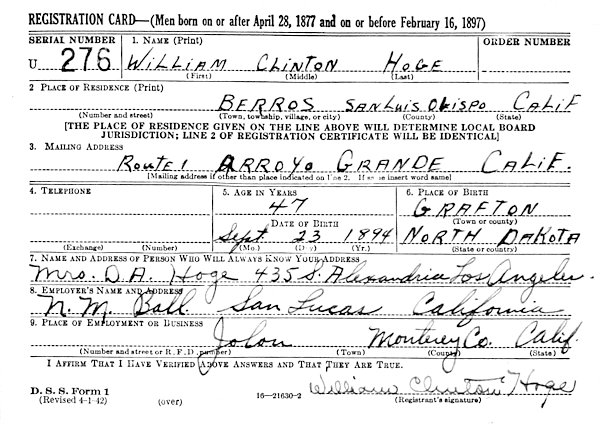 REGISTRATION CARD—(Men born on or after April 28, 1877 and on or before February 16, 1897)
SERIAL NUMBER 1. NAME (Print) ORDER NUMBER
U 276 WILLIAM CLINTON HOGE
(First) (Middle) (Last)
2 PLACE OF RESIDENCE (Print)
BERROS SAN LUIS OBISPO CALIF
(Number and street) (Town, township, village, or city) (County) (State)
[THE PLACE OF RESIDENCE GIVEN ON THE LINE ABOVE WILL DETERMINE LOCAL BOARD
JURISDICTION; LINE 2 OF REGISTRATION CERTIFICATE WILL BE IDENTICAL]
3. MAILING ADDRESS
ROUTE 1 ARROYO GRANDE CALIF.
[Mailing address if other than place indicated on line 2. If same insert word same]
4. TELEPHONE 5. AGE IN YEARS 6. PLACE OF BIRTH
47 GRAFTON
DATE OF BIRTH (Town or county)
Sept. 23 1894 NORTH DAKOTA
(Exchange) (Number) (Mo.) (Day) (Yr.) (State or country)
7. NAME AND ADDRESS OF PERSON WHO WILL ALWAYS KNOW YOUR ADDRESS
Mrs. D.A. Hoge 435 S. Alexandria Los Angeles
8. EMPLOYER'S NAME AND ADDRESS
N.M. Ball San Lucas California
9. PLACE OF EMPLOYMENT OR BUSINESS
Jolon Monterey Co. Calif.
(Number and street or R. F. D. number) (Town) (County) (State)
I AFFIRM THAT I HAVE VERIFIED ABOVE ANSWERS AND THAT THEY ARE TRUE.
William Clinton Hoge
D. S. S. Form 1 16—21630-2 (Registrant's signature)
(Revised 4-1-42) (over)